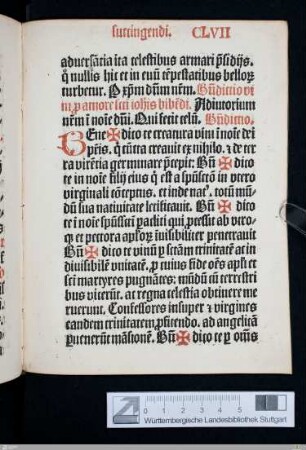 succingendi. CLVII
aduersaria ita celestibus armari p̄sidijs.
q̄ nullis hic et in euū tēpestatibus belloꝝ
turbetur. P xp̄m dn̄m nr̄m. Bn̄dictio vi
ni ꝓ amore sci ioh̄is bibēdi. Adiutorium
nr̄m ī noīe dn̄i. Qui fecit celū. Bn̄dictio.
BEne✠dico te creatura vini ī noīe dei
pr̄is. q̄ cūcta creauit ex nihilo. ⁊ de ter
ra virētia germinare p̄cepit. Bn̄✠dico
te in noīe filij eius q̄ est a spūscō in vtero
virginali cōceptus. et inde natꝰ. totū mū
dū sua natiuitate letificauit. Bn̄✠dico
te ī noīe spūssc̄i ꝑacliti qui ꝓcessit ab vtro
q̨ et pectora apl̄oꝝ īuisibiliter penetrauit
Bn̄✠dico te vinū ꝑ scām trinitatē at in
diuisibilē vnitatē. ꝓ cuius fide oēs apl̄i et
sc̄i martyres pugnātes: mūdū cū terrestri
bus vicerūt. at regna celestia obtinere me
ruerunt. Confessores insuper ⁊ virgines
eandem trinitatem ꝓfitendo. ad angelicā
ꝑuenerūt māsionē. Bn̄✠dico te ꝑ oīm̄s
0 1 2 3 4 5
Württembergische Landesbibliothek Stuttgart